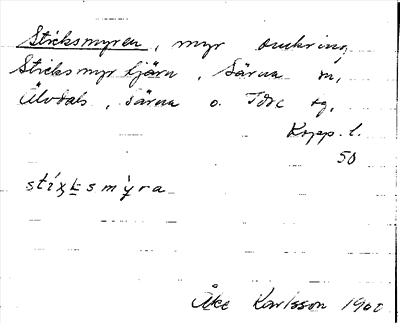 Sticksmyren, myr omkring
Sticksmyrtjärn, Särna sn,
Älvdals, Särna o. Idre tg,
Kopp. l.
50
stíx̣ḵsmỳra
Åke Karlsson 1960